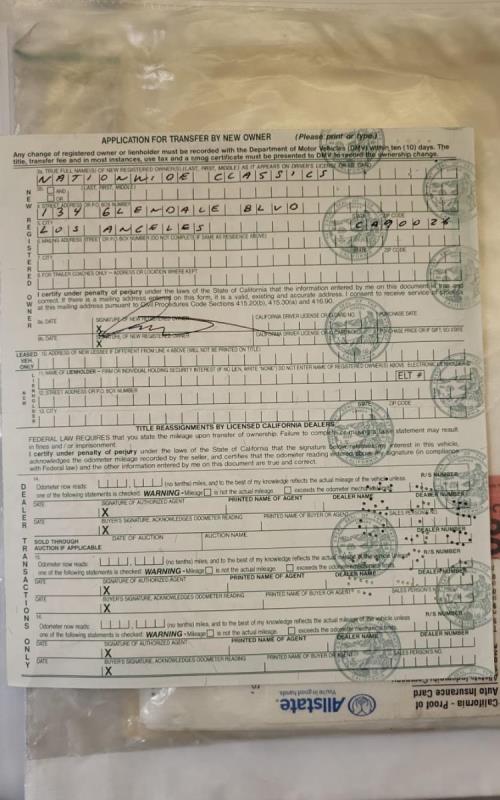 APPLICATION FOR TRANSFER BY NEW OWNER (Please print or type)
Any change of registered owner or lienholder must be recorded with the Department of Motor Vehicles (DMV) within ten (10) days. The
title, transfer fee and in most instances, use tax and a smog certificate must be presented to DMV to record the ownership change.
TRUE FULL NAME(S) OF NEW REGISTERED OWNER(S) (LAST, FIRST, MIDDLE) AS IT APPEARS ON DRIVER'S LICENSE OR ID CARD
NATIONWIDE CLASSICS
AND
OR
(LAST, FIRST, MIDDLE)
STREET ADDRESS OR P.O. BOX NUMBER
134 GLENDALE BLVD
CITY ZIP CODE
LOS ANGELES CA90026
MAILING ADDRESS (STREET OR P.O. BOX NUMBER DO NOT COMPLETE IF SAME AS RESIDENCE ABOVE)
FOR TRAILER COACHES ONLY – ADDRESS OR LOCATION WHERE KEPT
NEW REGISTERED OWNER
I certify under penalty of perjury under the laws of the State of California that the information entered by me on this document is true and
correct. If there is a mailing address entered on this form, it is a valid, existing and accurate address. I consent to receive service of process
at this mailing address pursuant to Civil Procedures Code Sections 415.20(b), 415.30(a) and 416.90.
DATE SIGNATURE OF NEW REGISTERED OWNER CALIFORNIA DRIVER LICENSE OR ID CARD NO. PURCHASE DATE
X
DATE SIGNATURE OF NEW REGISTERED OWNER PURCHASE PRICE OR IF GIFT, SO STATE
X
LEASED VEH. ONLY
NAME OF NEW LESSEE IF DIFFERENT FROM LINE 4 ABOVE (WILL NOT BE PRINTED ON TITLE)
NAME OF LIENHOLDER – FIRM OR INDIVIDUAL HOLDING SECURITY INTEREST (IF NO LIEN, WRITE "NONE") DO NOT ENTER NAME OF REGISTERED OWNER(S) ABOVE.
ELT #
STREET ADDRESS OR P.O. BOX NUMBER
CITY STATE ZIP CODE
NEW LIENHOLDER
TITLE REASSIGNMENTS BY LICENSED CALIFORNIA DEALERS
FEDERAL LAW REQUIRES that you state the mileage upon transfer of ownership. Failure to complete or making a false statement may result
in fines and / or imprisonment.
I certify under penalty of perjury under the laws of the State of California that the signature below releases my interest in this vehicle,
acknowledges the mileage recorded by the seller, and certifies that the odometer reading entered above my signature (in compliance
with Federal law) and the other information entered by me on this document are true and correct.
DEALER TRANSACTIONS ONLY
14.
Odometer now reads: (no tenths) miles, and to the best of my knowledge reflects the actual mileage of the vehicle unless
one of the following statements is checked. WARNING - Mileage is not the actual mileage. exceeds the odometer mechanical limits.
R/S NUMBER
DATE SIGNATURE OF AUTHORIZED AGENT PRINTED NAME OF AGENT DEALER NAME DEALER NUMBER
X
DATE BUYER'S SIGNATURE, ACKNOWLEDGES ODOMETER READING PRINTED NAME OF BUYER OR AGENT
X
SOLD THROUGH AUCTION IF APPLICABLE
DATE OF AUCTION AUCTION NAME DEALER NUMBER
15.
Odometer now reads: (no tenths) miles, and to the best of my knowledge reflects the actual mileage of the vehicle unless
one of the following statements is checked. WARNING - Mileage is not the actual mileage. exceeds the odometer mechanical limits.
R/S NUMBER
DATE SIGNATURE OF AUTHORIZED AGENT PRINTED NAME OF AGENT DEALER NUMBER
X
DATE BUYER'S SIGNATURE, ACKNOWLEDGES ODOMETER READING PRINTED NAME OF BUYER OR AGENT SALES PERSON'S NO.
X
16.
Odometer now reads: (no tenths) miles, and to the best of my knowledge reflects the actual mileage of the vehicle unless
one of the following statements is checked. WARNING - Mileage is not the actual mileage. exceeds the odometer mechanical limits.
R/S NUMBER
DATE SIGNATURE OF AUTHORIZED AGENT PRINTED NAME OF AGENT DEALER NAME DEALER NUMBER
X
DATE BUYER'S SIGNATURE, ACKNOWLEDGES ODOMETER READING PRINTED NAME OF BUYER OR AGENT SALES PERSON'S NO.
X
California - Proof of
Auto Insurance Card
Allstate
You're in good hands.